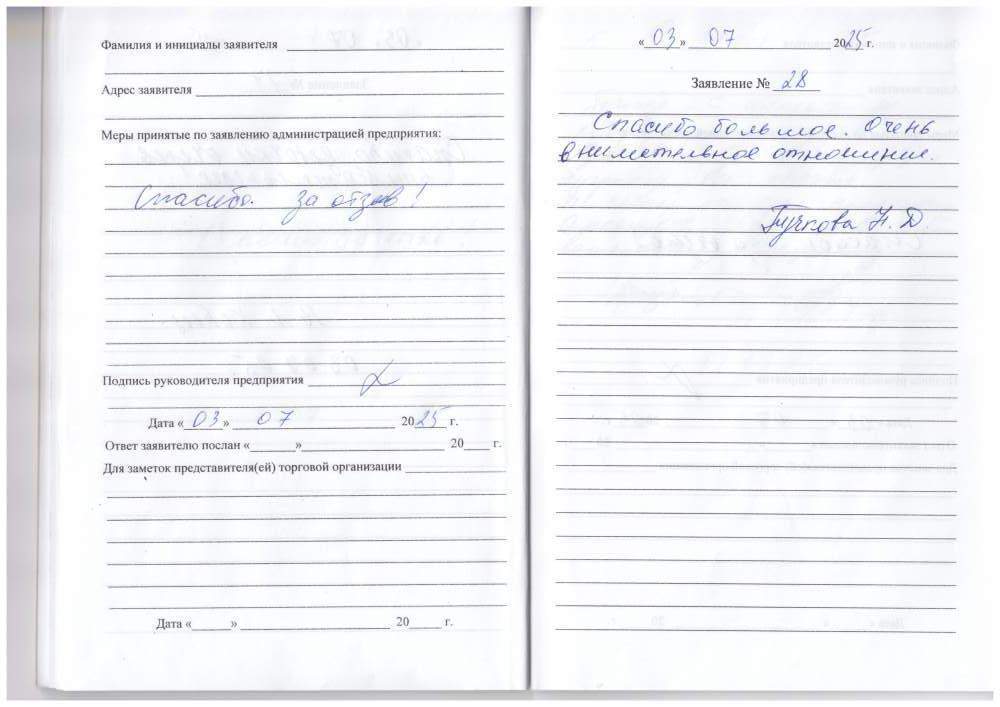 Фамилия и инициалы заявителя
Адрес заявителя
Меры принятые по заявлению администрацией предприятия:
Спасибо. за отзыв!
Подпись руководителя предприятия
Дата «03» 07 2025 г.
Ответ заявителю послан «______» ______ 20____ г.
Для заметок представителя(ей) торговой организации
Дата «______» ______ 20_____ г.
«03» 07 2025 г.
Заявление № 28
Спасибо большое. Очень
внимательное отношение.
Гучкова Н. Д.